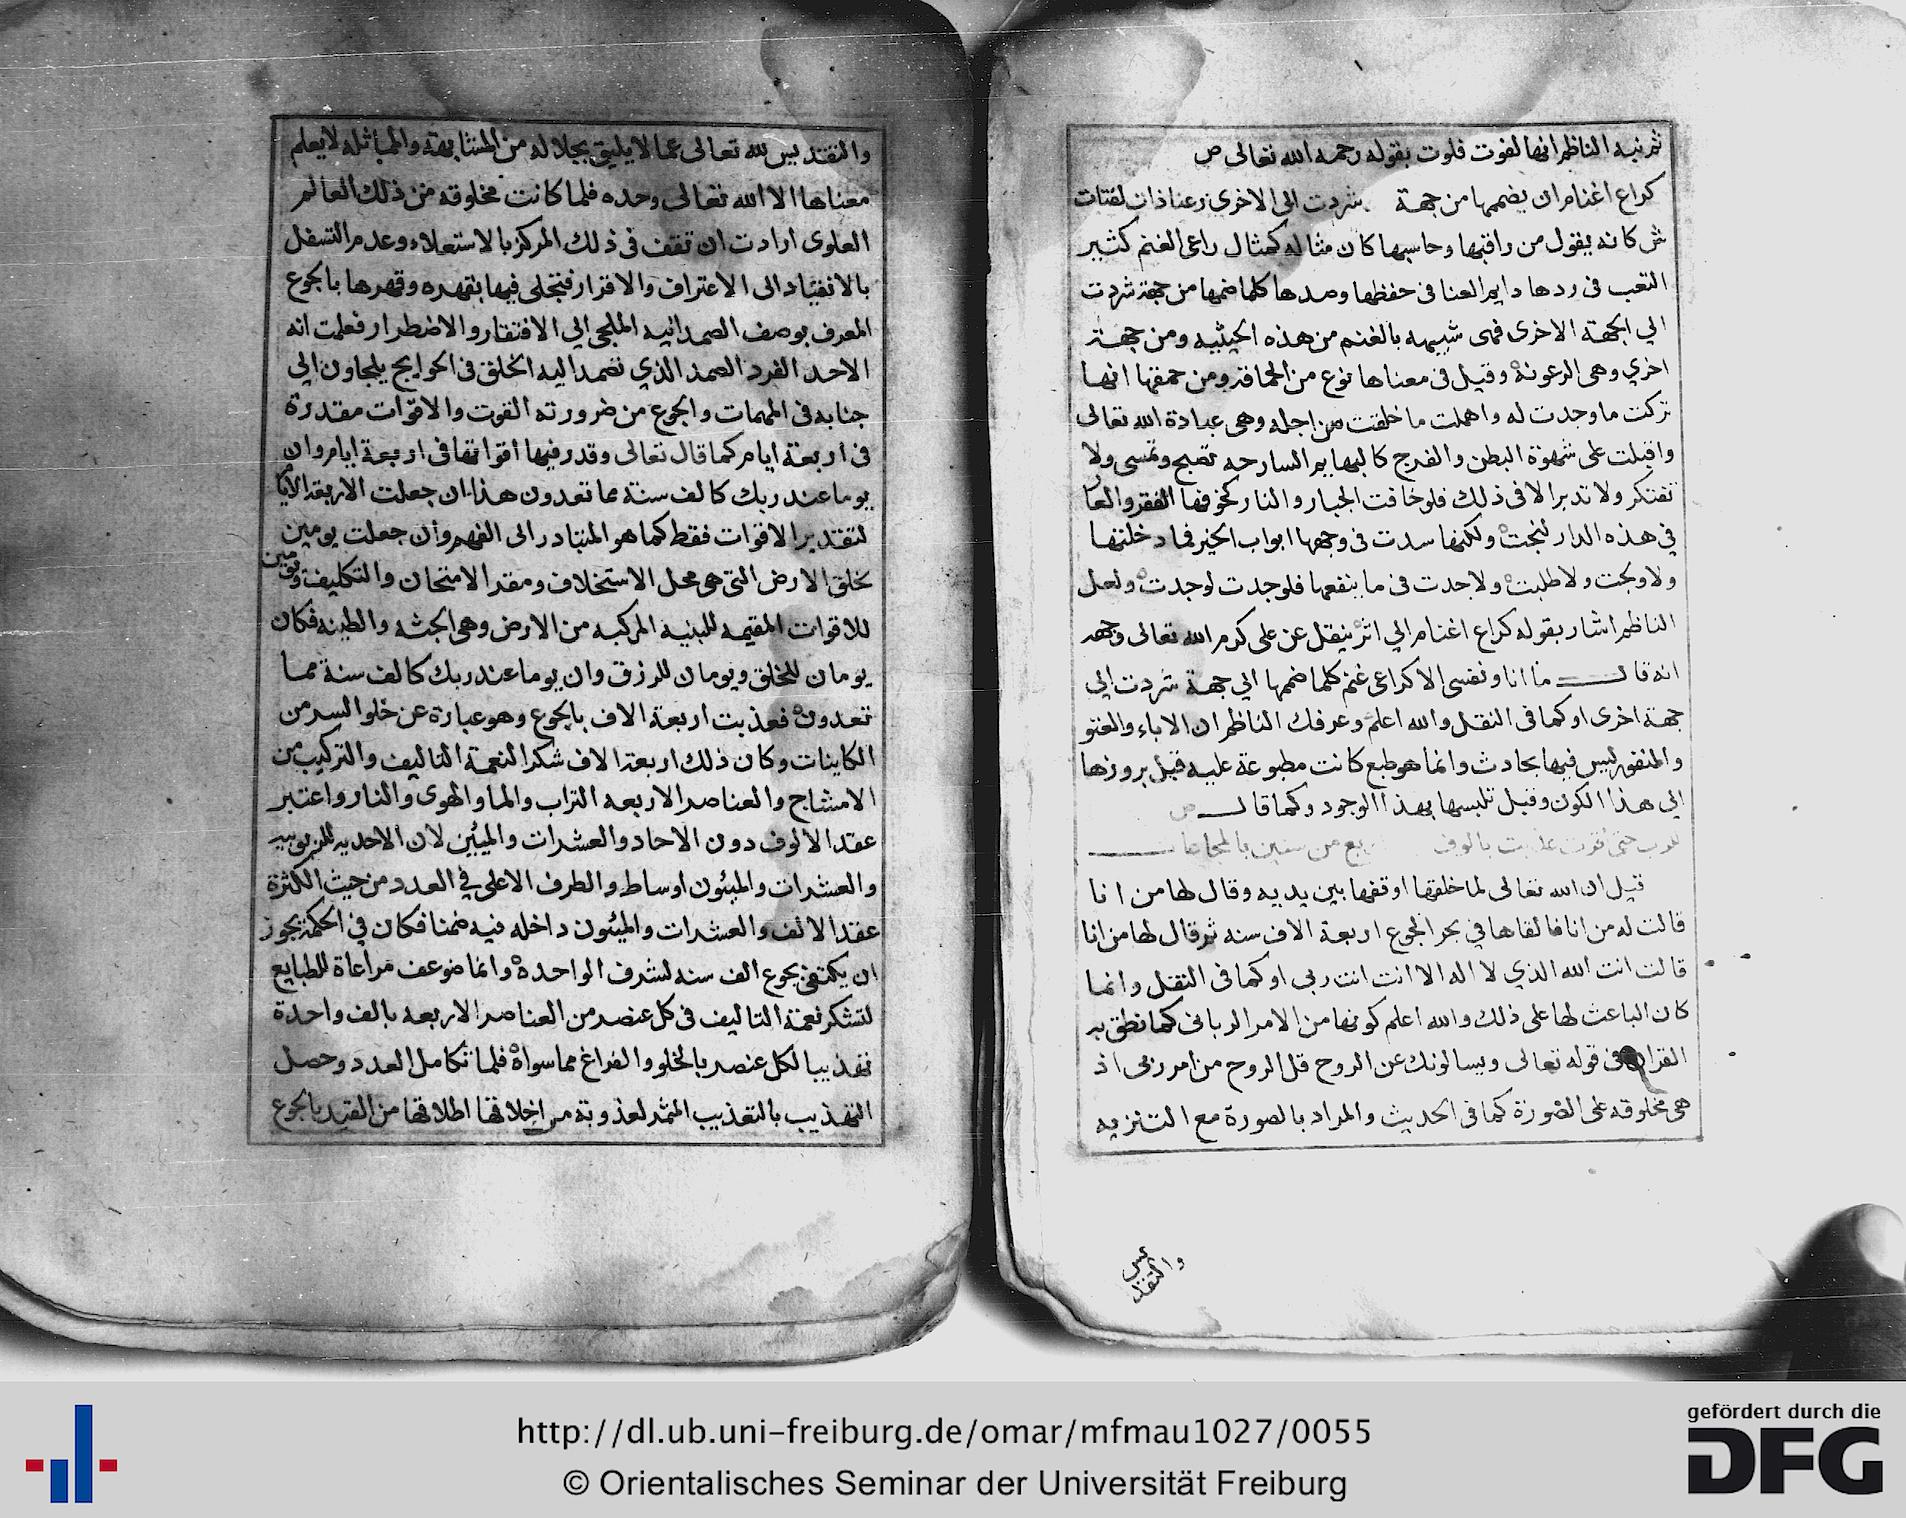 ثم نبه الناظم انها لفوت فلوت بقوله رحمه الله تعالى ص
كراع اغنام ان يضمها من جهة شردت الى الاخرى زعنا ذات لفتات
ش كانه يقول من راقبها وحاسبها كان مثاله كمثال راعى الغنم كثير
التعب فى ردها دايم العنا فى حفظها وصدها كلما ضمها من جهة شردت
الي الجهة الاخرى فهى شبيهه بالغنم من هذه الحيثيه ومن جهة
اخري وهى الرعونة وقيل فى معناها نوع من الحماقة ومن حمقها انها
تركت ما وجدت له واهملت ما خلقت من اجله وهى عبادة الله تعالى
واقبلت على شهوة البطن والفرج كالبهايم السارحه تصبح وتمسى ولا
تفتكر ولا تدبر الا فى ذلك فلو خافت الجبار والنار كخوفها الفقر والعا
في هذه الدار لنجت ولكنها سدت فى وجهها ابواب الخير فما دخلتها
ولا ولجت ولا طلبت ولا جدت فى ما ينفعها فلو جدت لوجدت ولعل
الناظم اشار بقوله كراع اغنام الي اثر ينقل عن على كرم الله تعالى وجهه
انه قال ما انا ونفسى الا كراعى غنم كلما ضمها الي جهة شردت الي
جهة اخرى او كما فى النقل والله اعلم وعرفك الناظم ان الاباء والعتو
والنفور ليس فيها بحادث وانما هو طبع كانت مطبوعة عليه قبل بروزها
الي هذا الكون وقبل تلبسها بهذا الوجود وكما قال ص
للرب حتى اقرت عذبت بالوف اربع من سنين بالمجاعات
قيل ان الله تعالى لما خلقها اوقفها بين يديه وقال لها من انا
قالت له من انا فالقاها في بحر الجوع اربعة الاف سنه ثم قال لها من انا
قالت انت الله الذي لا اله الا انت انت ربى او كما فى النقل وانما
كان الباعث لها على ذلك والله اعلم كونها من الامر الربانى كما نطق به
القران فى قوله تعالى ويسالونك عن الروح قل الروح من امر ربى اذ
هى مخلوقه على الصورة كما فى الحديث والمراد بالصورة مع التنزيه
والتقديس
والتقديس لله تعالى عما لا يليق بجلاله من المشابهة والمماثله لا يعلم
معناها الا الله تعالى وحده فلما كانت مخلوقه من ذلك العالم
العلوى ارادت ان تقف فى ذلك المركز بالاستعلاء وعدم التسفل
بالانقياد الى الاعتراف والاقرار فتجلى فيها بقهره وقهرها بالجوع
المعرف بوصف الصمدانيه الملجى الي الافتقار والاضطرار فعلمت انه
الاحد الفرد الصمد الذي تصمد اليه الخلق فى الحوايج يلجاون الي
جنابه فى المهمات والجوع من ضرورته القوت والاقوات مقدرة
فى اربعة ايام كما قال تعالى وقدر فيها اقواتها فى اربعة ايام وان
يوما عند ربك كالف سنة مما تعدون هذا ان جعلت الاربعة الايام
لتقدير الاقوات فقط كما هو المتبادر الى الفهم وان جعلت يومين
لخلق الارض التى هى محل الاستخلاف ومقر الامتحان والتكليف ويومين
للاقوات المقيمه للبنية المركبه من الارض وهى الجثه والطينه فكان
يومان للخلق ويومان للرزق وان يوما عند ربك كالف سنة مما
تعدون فعذبت اربعة الاف بالجوع وهو عبارة عن خلو السر من
الكاينات وكان ذلك اربعة الاف شكرا لنعمة التاليف والتركيب من
الامشاج والعناصر الاربعه التراب والما والهوى والنار واعتبر
عقد الالوف دون الاحاد والعشرات والميئين لان الاحديه للربوبيه
والعشرات والميئون اوساط والطرف الاعلى في العدد من حيث الكثرة
عقد الالف والعشرات والميئون داخله فيه ضمنا فكان في الحكمة يجوز
ان يكتفى بجوع الف سنه لشرف الواحدة وانما ضوعف مراعاة للطبايع
لتشكر نعمة التاليف فى كل عنصر من العناصر الاربعه بالف واحدة
تهذيبا لكل عنصر بالخلو والفراغ مما سواه فلما تكامل العدد وحصل
التهذيب بالتعذيب المثمر لعذوبة من اخلاقها اطلاقها من القيد بالجوع
http://dl.ub.uni-freiburg.de/omar/mfmau1027/0055
© Orientalisches Seminar der Universität Freiburg
gefördert durch die
DFG